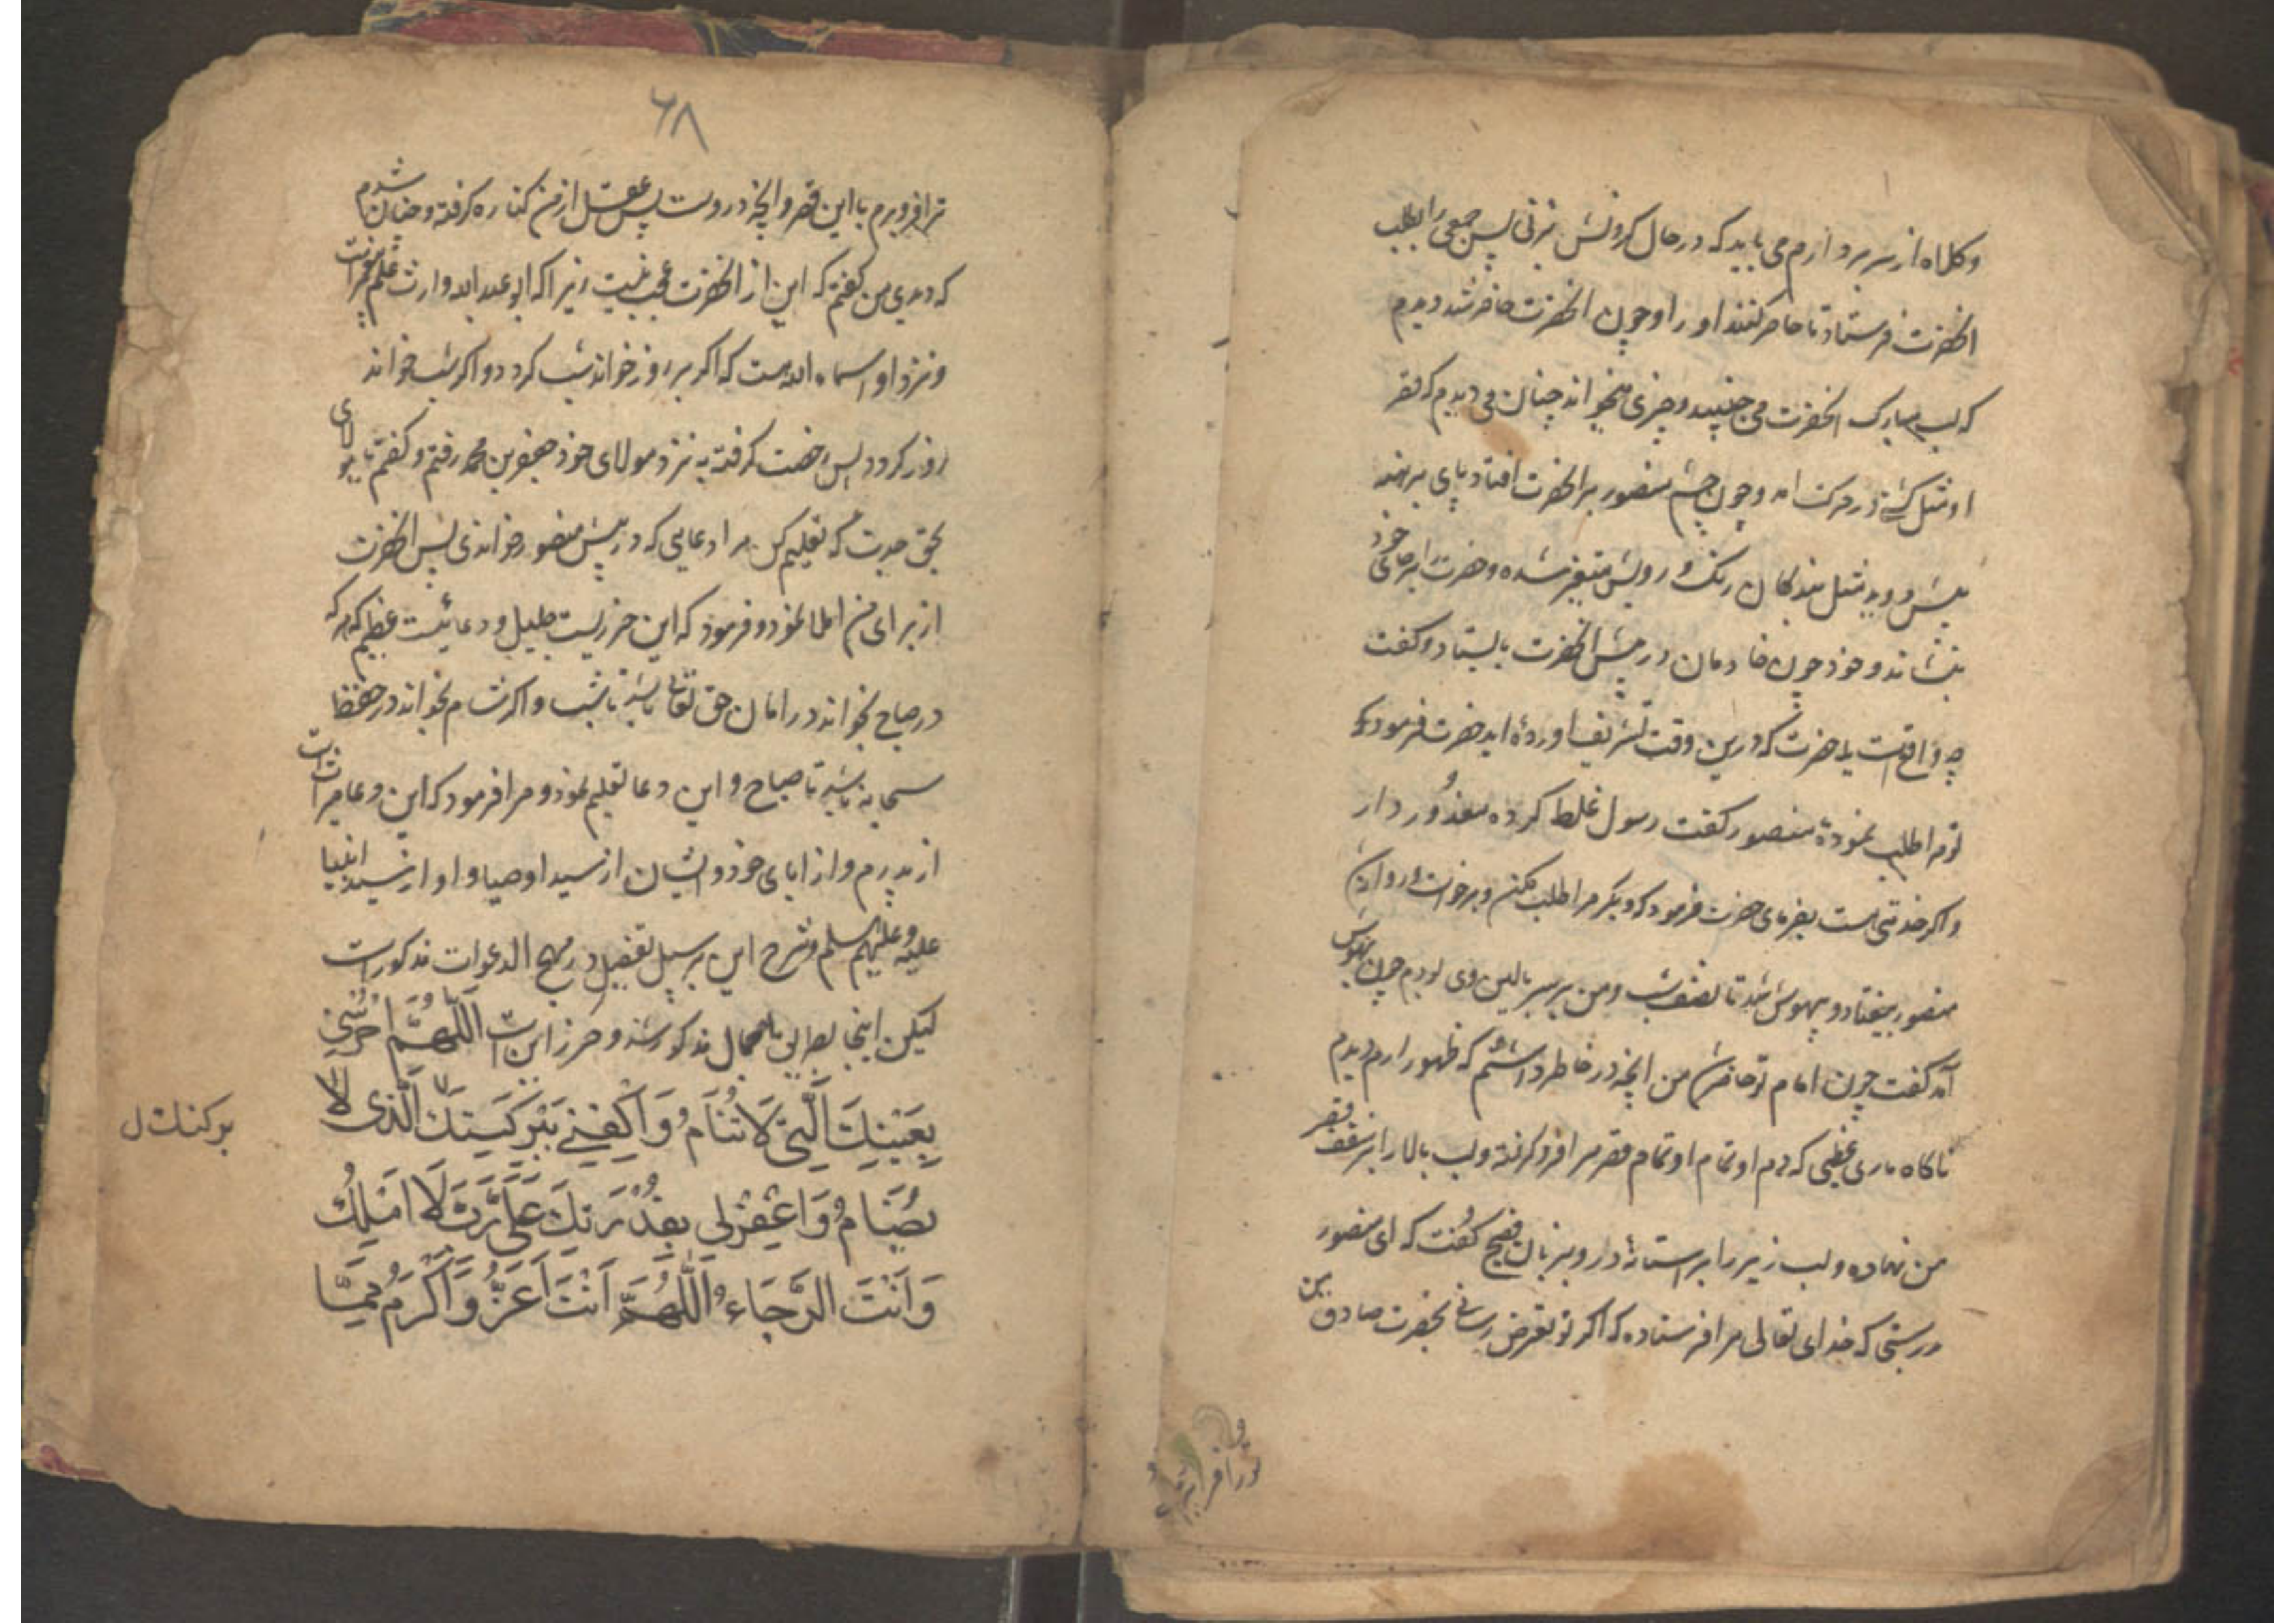 وکلاه از سر بردارم می باید که در حال کردنش بزنی پس جمعی را بطلب
انحضرت فرستاد تا حاضر کنند او را و چون انحضرت حاضر شد دیدم
که لب مبارک انحضرت می جنبید و چیزی میخواند چنان می دیدم که قصر
او مثل کشتی در حرکت امد و چون چشم منصور بر انحضرت افتاد پای برهنه
پیش دوید مثل بندکان رنک و رویش متغیر شده و حضرت را بر جای خود
بنشاند و خود چون خادمان در پیش انحضرت بایستاد و کفت
چه واقع است یا حضرت که درین وقت تشریف اوردۀ اید حضرت فرمود که
تو مرا طلب نمودۀ منصور کفت رسول غلط کرده معذور دار
و اکر خدمتی است بفرمای حضرت فرمود که دیکر مرا طلب مکن و برخواست و روانه شد
منصور بیفتاد و بیهوش شد تا نصف شب و من بر سر بالین وی بودم چون بهوش
آمد کفت چون امام تو حاضر شد من انچه در خاطر داشتم که ظهور ارم دیدم
ناکاه ماری عظیمی که دم او تمام قصر مرا فرو کرفته و لب بالا را بر سقف قصر
من نهاده و لب زیر را بر استانۀ دار و بزبان فصیح کفت که ای منصور
درستی که خدای تعالی مرا فرستاده که اکر تو تعرض رسانی بحضرت صادق من
ترا فرو برم
۶۸
ترا فرو برم با این قصر و انچه دروست پس عقل از من کناره کرفته و چنان شدم
که دیدی من کفتم که این از انحضرت عجب نیست زیرا که ابو عبد الله وارث علم حضرت
و نزد او اسماء الله است که اکر بر روز خواند شب کردد و اکر بشب خواند
روز کردد پس رخصت کرفته به نزد مولای خود جعفر بن محمد رفتم و کفتم یا مولای
بحق جدت که تعلیم کن مرا دعایی که در پیش منصور خواندی پس انحضرت
از برای من املا نمود و فرمود که این حرزیست جلیل و دعائیست عظیم که هر که
در صباح بخواند در امان حق تعالی باشد تا شب و اکر شام بخواند در حفظ
سبحانه باشد تا صباح و این دعا تعلیم نمود و مرا فرمود که این دعا میراث است
از پدرم و از ابای خود و ایشان از سید اوصیا و او از سید انبیا
علیه و علیهم سلم و شرح این بر سبیل تفصیل در مهج الدعوات مذکور است
لیکن اینجا بطریق اجمال مذکور شد و حرز این است اَللّٰهُمَّ احْرُسْنِی
بِعَیْنِكَ الَّتِی لَا تَنَامُ وَاكْفِنِی بِبَرَکَتِكَ الَّذِی لَا
یُضَامُ وَاغْفِرْلِی بِقُدْرَتِكَ عَلَیَّ رَبِّ لَا اَهْلِكُ
وَاَنْتَ الرَّجَاءُ اَللّٰهُمَّ اَنْتَ اَعَزُّ وَاَکْرَمُ مِمَّا
برکنك ل